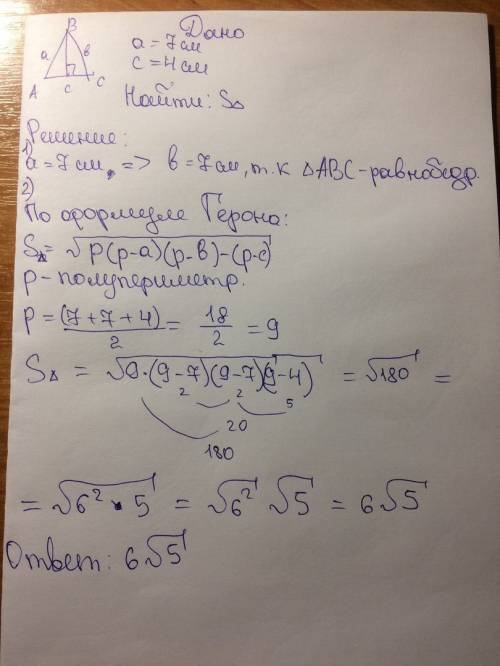 B Дано
a в a = 7 см
A c C c = 4 см
Найти: S△
Решение:
1) a = 7 см, => в = 7 см, т.к △ABC - равнобедр.
2)
По формуле Герона:
S△ = √p(p-a)(p-в)-(p-c)
p - полупериметр.
p = (7+7+4)/2 = 18/2 = 9
S△ = √9·(9-7)(9-7)(9-4) = √180 =
2 2 5
20
180
= √6²·5 = √6² √5 = 6√5
Ответ: 6√5